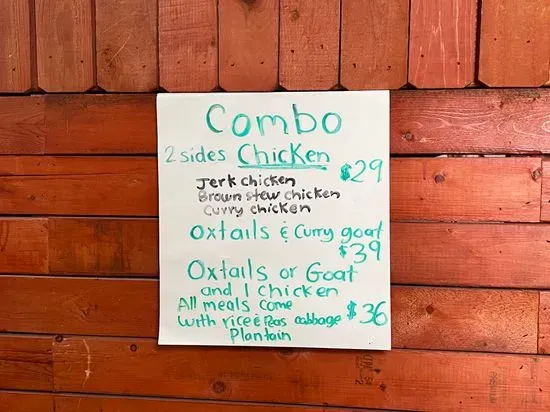 Combo
2 sides Chicken $29
Jerk chicken
Brown stew chicken
Curry chicken
Oxtails & Curry goat
$39
Oxtails or Goat
and 1 chicken
All meals come $36
with rice & Peas cabbage
Plantain